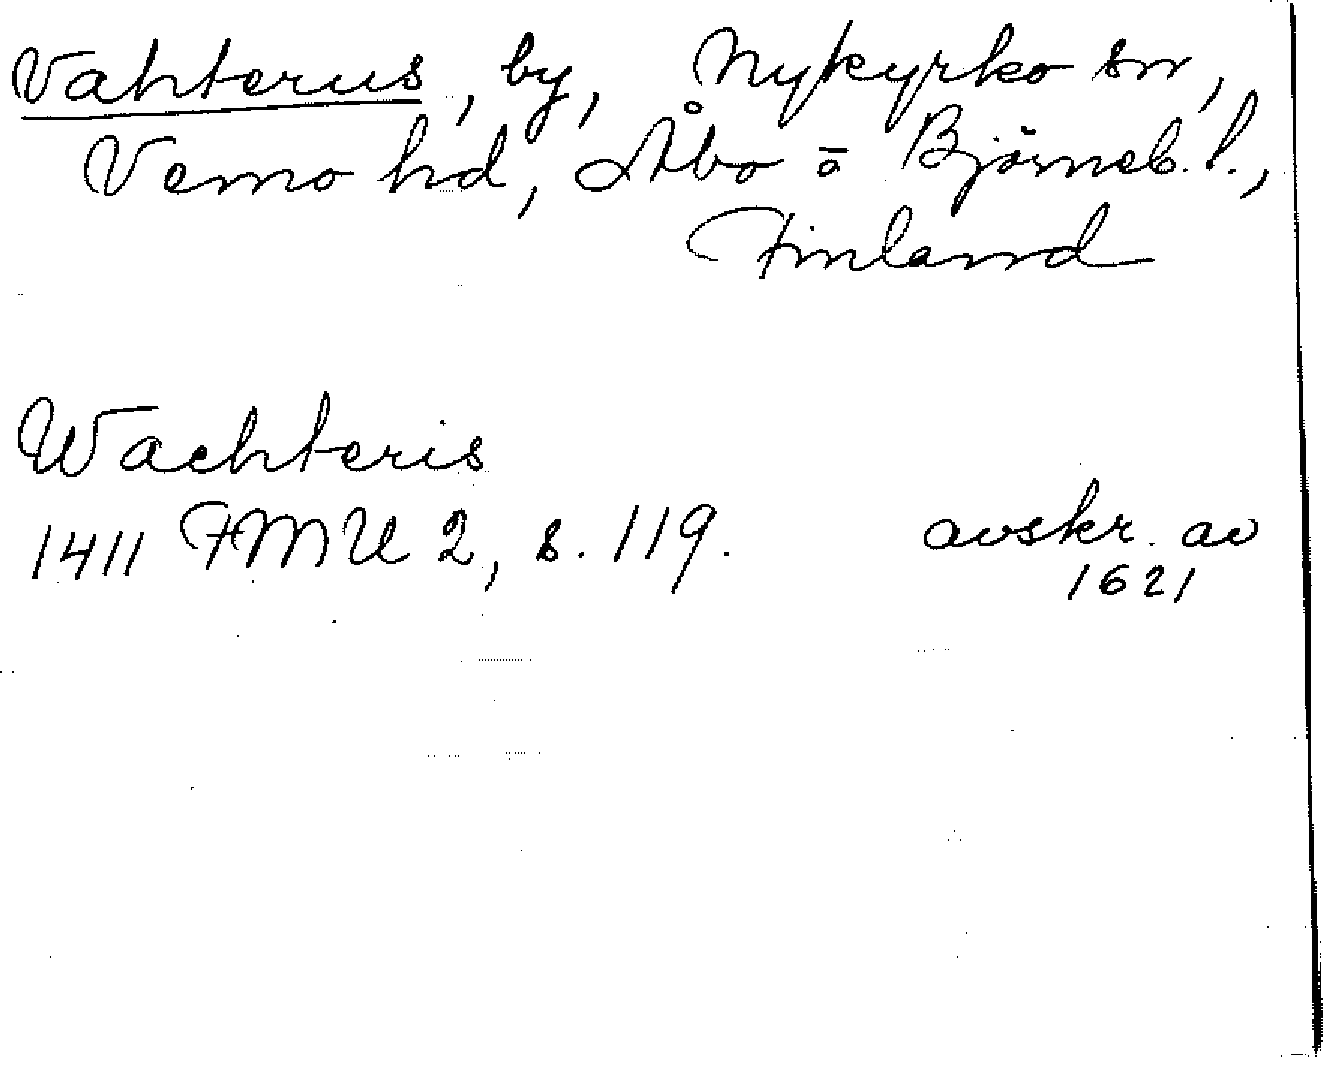 Vahterus, by, Nykyrko sn,
Vemo hd, Åbo o Björneb. l.,
Finland
Wachteris
1411 FMU 2, s. 119. avskr. av
1621